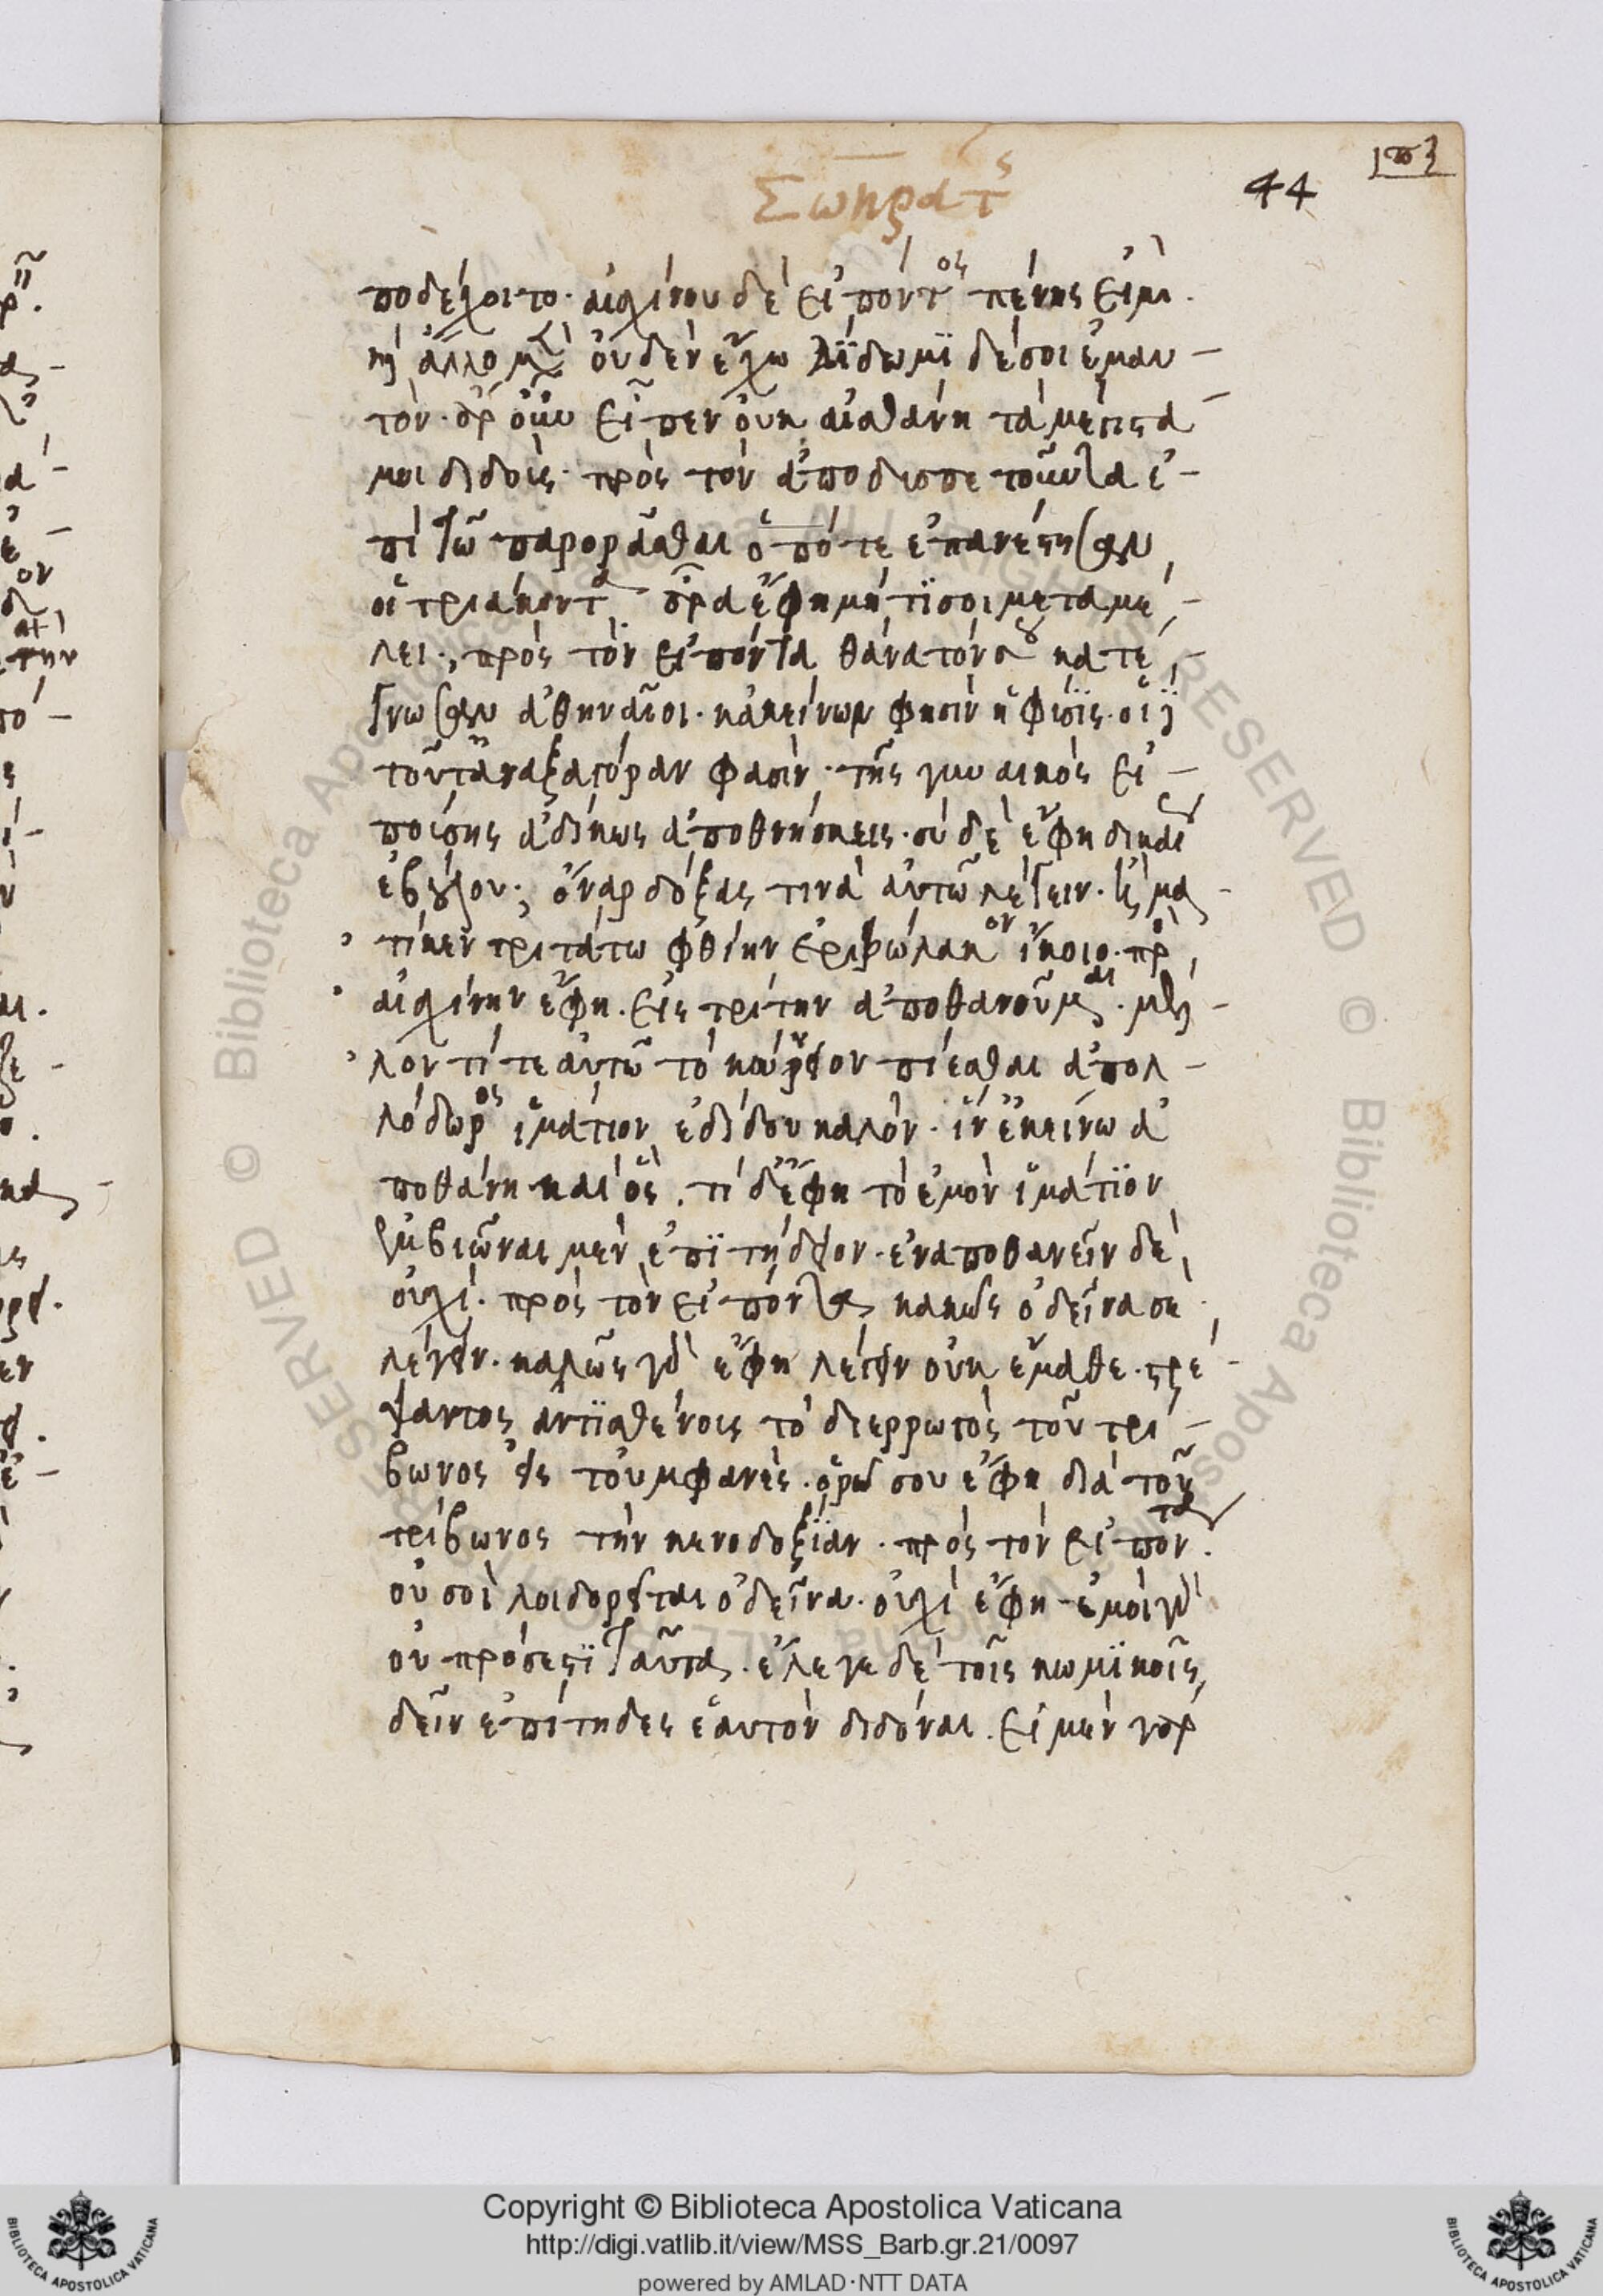 Σωκρατ´ς
44
ποδέχοιτο. αἰσχίνου δὲ εἰπόντος πένης εἰμὶ.
καὶ ἄλλο μὲν οὐδὲν ἔχω δίδωμϊ δέ σοι ἐμαυ-
τόν. ἆρ οὖν εἶπεν οὐκ αἰσθάνη τὰ μέγιστά
μοι διδοὺς. πρὸς τὸν ἀποδυσπετοῦντα ἐ-
πὶ τῶ παρορᾶσθαι ὁπότε ἐπανέστησαν
οἱ τριάκοντα ἆρα ἔφη μή τϊ σοι μεταμέ-
λει., πρὸς τὸν εἰπόντα θάνατόν σου κατέ-
γνωσαν ἀθηναῖοι. κἀκείνων φησὶν ἡ φύσϊς. οἱ δὲ
τοῦτ ἀναξαγόραν φασίν. τῆς γυναικὸς εἰ-
πούσης ἀδίκως ἀποθνήσκεις. σὺ δὲ ἔφη δικαί
ἐβούλου; ὄναρ δόξας τινὰ αὐτῶ λέγειν. ἤμα-
τί κεν τριτάτω φθίην ἐρίβωλον ἵκοιο. πρὸς
αἰσχίνην ἔφη. εἰς τρίτην ἀποθανοῦμαι. μέλ-
λοντί τε αὐτῶ τὸ κώνειον πίεσθαι ἀπολ-
λόδωρος ἱμάτιον ἐδίδου καλὸν. ἵν ἐκείνω ἀ
ποθάνη καὶ ὃς. τί δὲ ἔφη τὸ ἐμὸν ἱμάτϊον
ἐμβιῶναι μὲν ἐπϊτήδειον. ἐναποθανεῖν δὲ
οὐχὶ. πρὸς τὸν εἰπόντα κακῶς ὁ δεῖνα σε
λέγειν. καλῶς γὰρ ἔφη λέγειν οὐκ ἔμαθε. στρέ-
ψαντος αντϊσθένους τὸ διερρωγὸς τοῦ τρί-
βωνος εἰς τοὐμφανὲς. ὁρῶ σου ἔφη διὰ τοῦ
τρίβωνος τὴν κενοδοξΐαν. πρὸς τὸν εἰπόντα.
οὐ σοὶ λοιδορεῖται ὁ δεῖνα. οὐχὶ ἔφη ἐμοὶ γὰρ
οὐ πρόσεστϊ ταῦτα. ἔλεγε δὲ τοῖς κωμϊκοῖς
δεῖν ἐπίτηδες ἑαυτὸν διδόναι. εἰ μὲν γὰρ
Copyright © Biblioteca Apostolica Vaticana
http://digi.vatlib.it/view/MSS_Barb.gr.21/0097
powered by AMLAD·NTT DATA